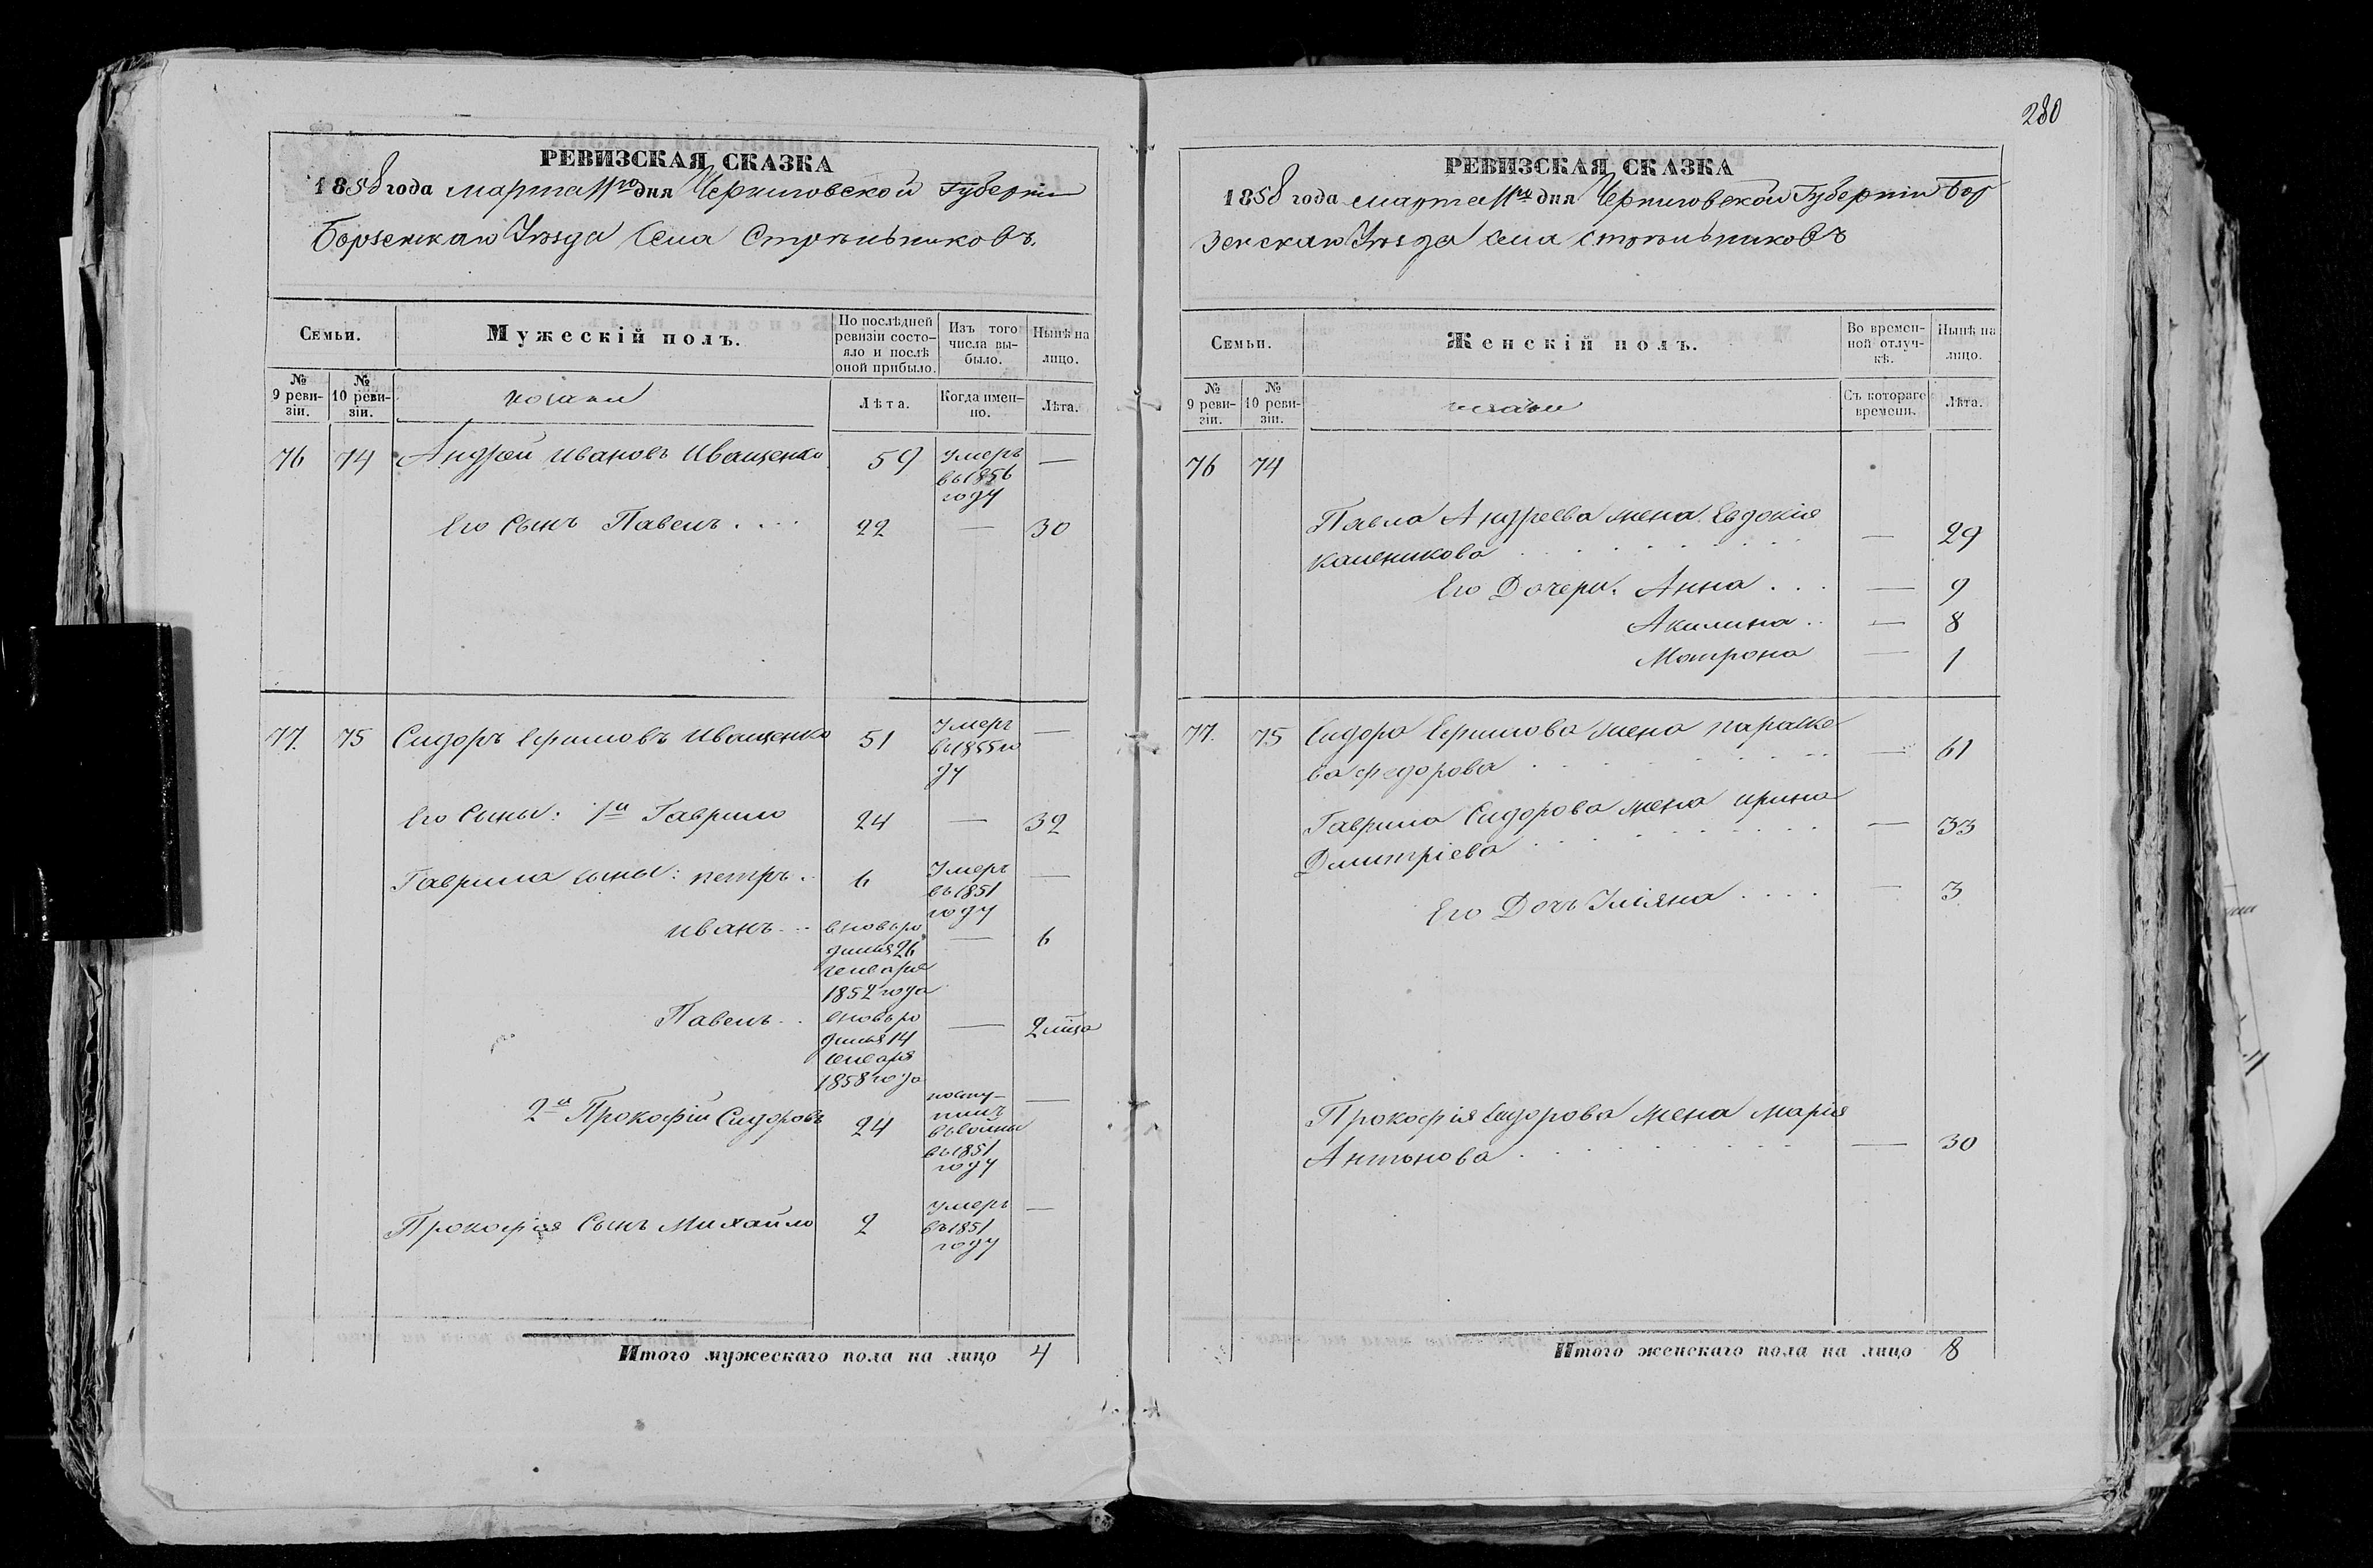 280
РЕВИЗСКАЯ СКАЗКА
1858 года марта 11го дня Черниговской Губерніи
Борзенскаго Уѣзда Села Стрѣльниковъ
Семьи.
Мужескій полъ.
По послѣдней ревизіи состояло и послѣ оной прибыло.
Изъ того числа выбыло.
Нынѣ на лицо.
№ 9 ревизіи.
№ 10 ревизіи.
козаки
Лѣта.
Когда именно.
Лѣта.
76 74 Андрей Ивановъ Иващенко 59 умеръ въ 1856 году —
Его Сынъ Павелъ . . . . 22 — 30
77. 75 Сидоръ Ефимовъ Иващенко 51 Умеръ въ 1855 году —
Его Сыны: 1й Гаврило 24 — 32
Гаврила сыны: петръ . . 6 Умеръ въ 1851 году —
иванъ . . . вновь родился 26 генваря 1852 года — 6
Павелъ . . вновь родился 14 генваря 1858 года — 2 мца
2й Прокофій Сидоровъ 24 поступилъ въ 1851 году —
Прокофія Сынъ Михайло 2 умеръ въ 1851 году —
Итого мужескаго пола на лицо 4
РЕВИЗСКАЯ СКАЗКА
1858 года марта 11го дня Черниговской Губерніи Бор
зенскаго Уѣзда села стрѣльниковъ
Семьи.
Женскій полъ.
Во временной отлучкѣ.
Нынѣ на лицо.
№ 9 ревизіи.
№ 10 ревизіи.
козаки
Съ котораго времени.
Лѣта.
76 74
Павла Андреева жена Евдокія
Каленикова . . . . . . . . — 29
Его Дочери: Анна . . . — 9
Акилина . . — 8
Мотрона — 1
77. 75 Сидора Ефимова жена параске
ва федорова . . . . . . . . — 61
Гаврила Сидорова жена ирина
Дмитріева . . . . . . . . — 33
Его Дочь Уліяна . . . . — 3
Прокофія Сидорова жена марія
Антонова . . . . . . . . — 30
Итого женскаго пола на лицо 8